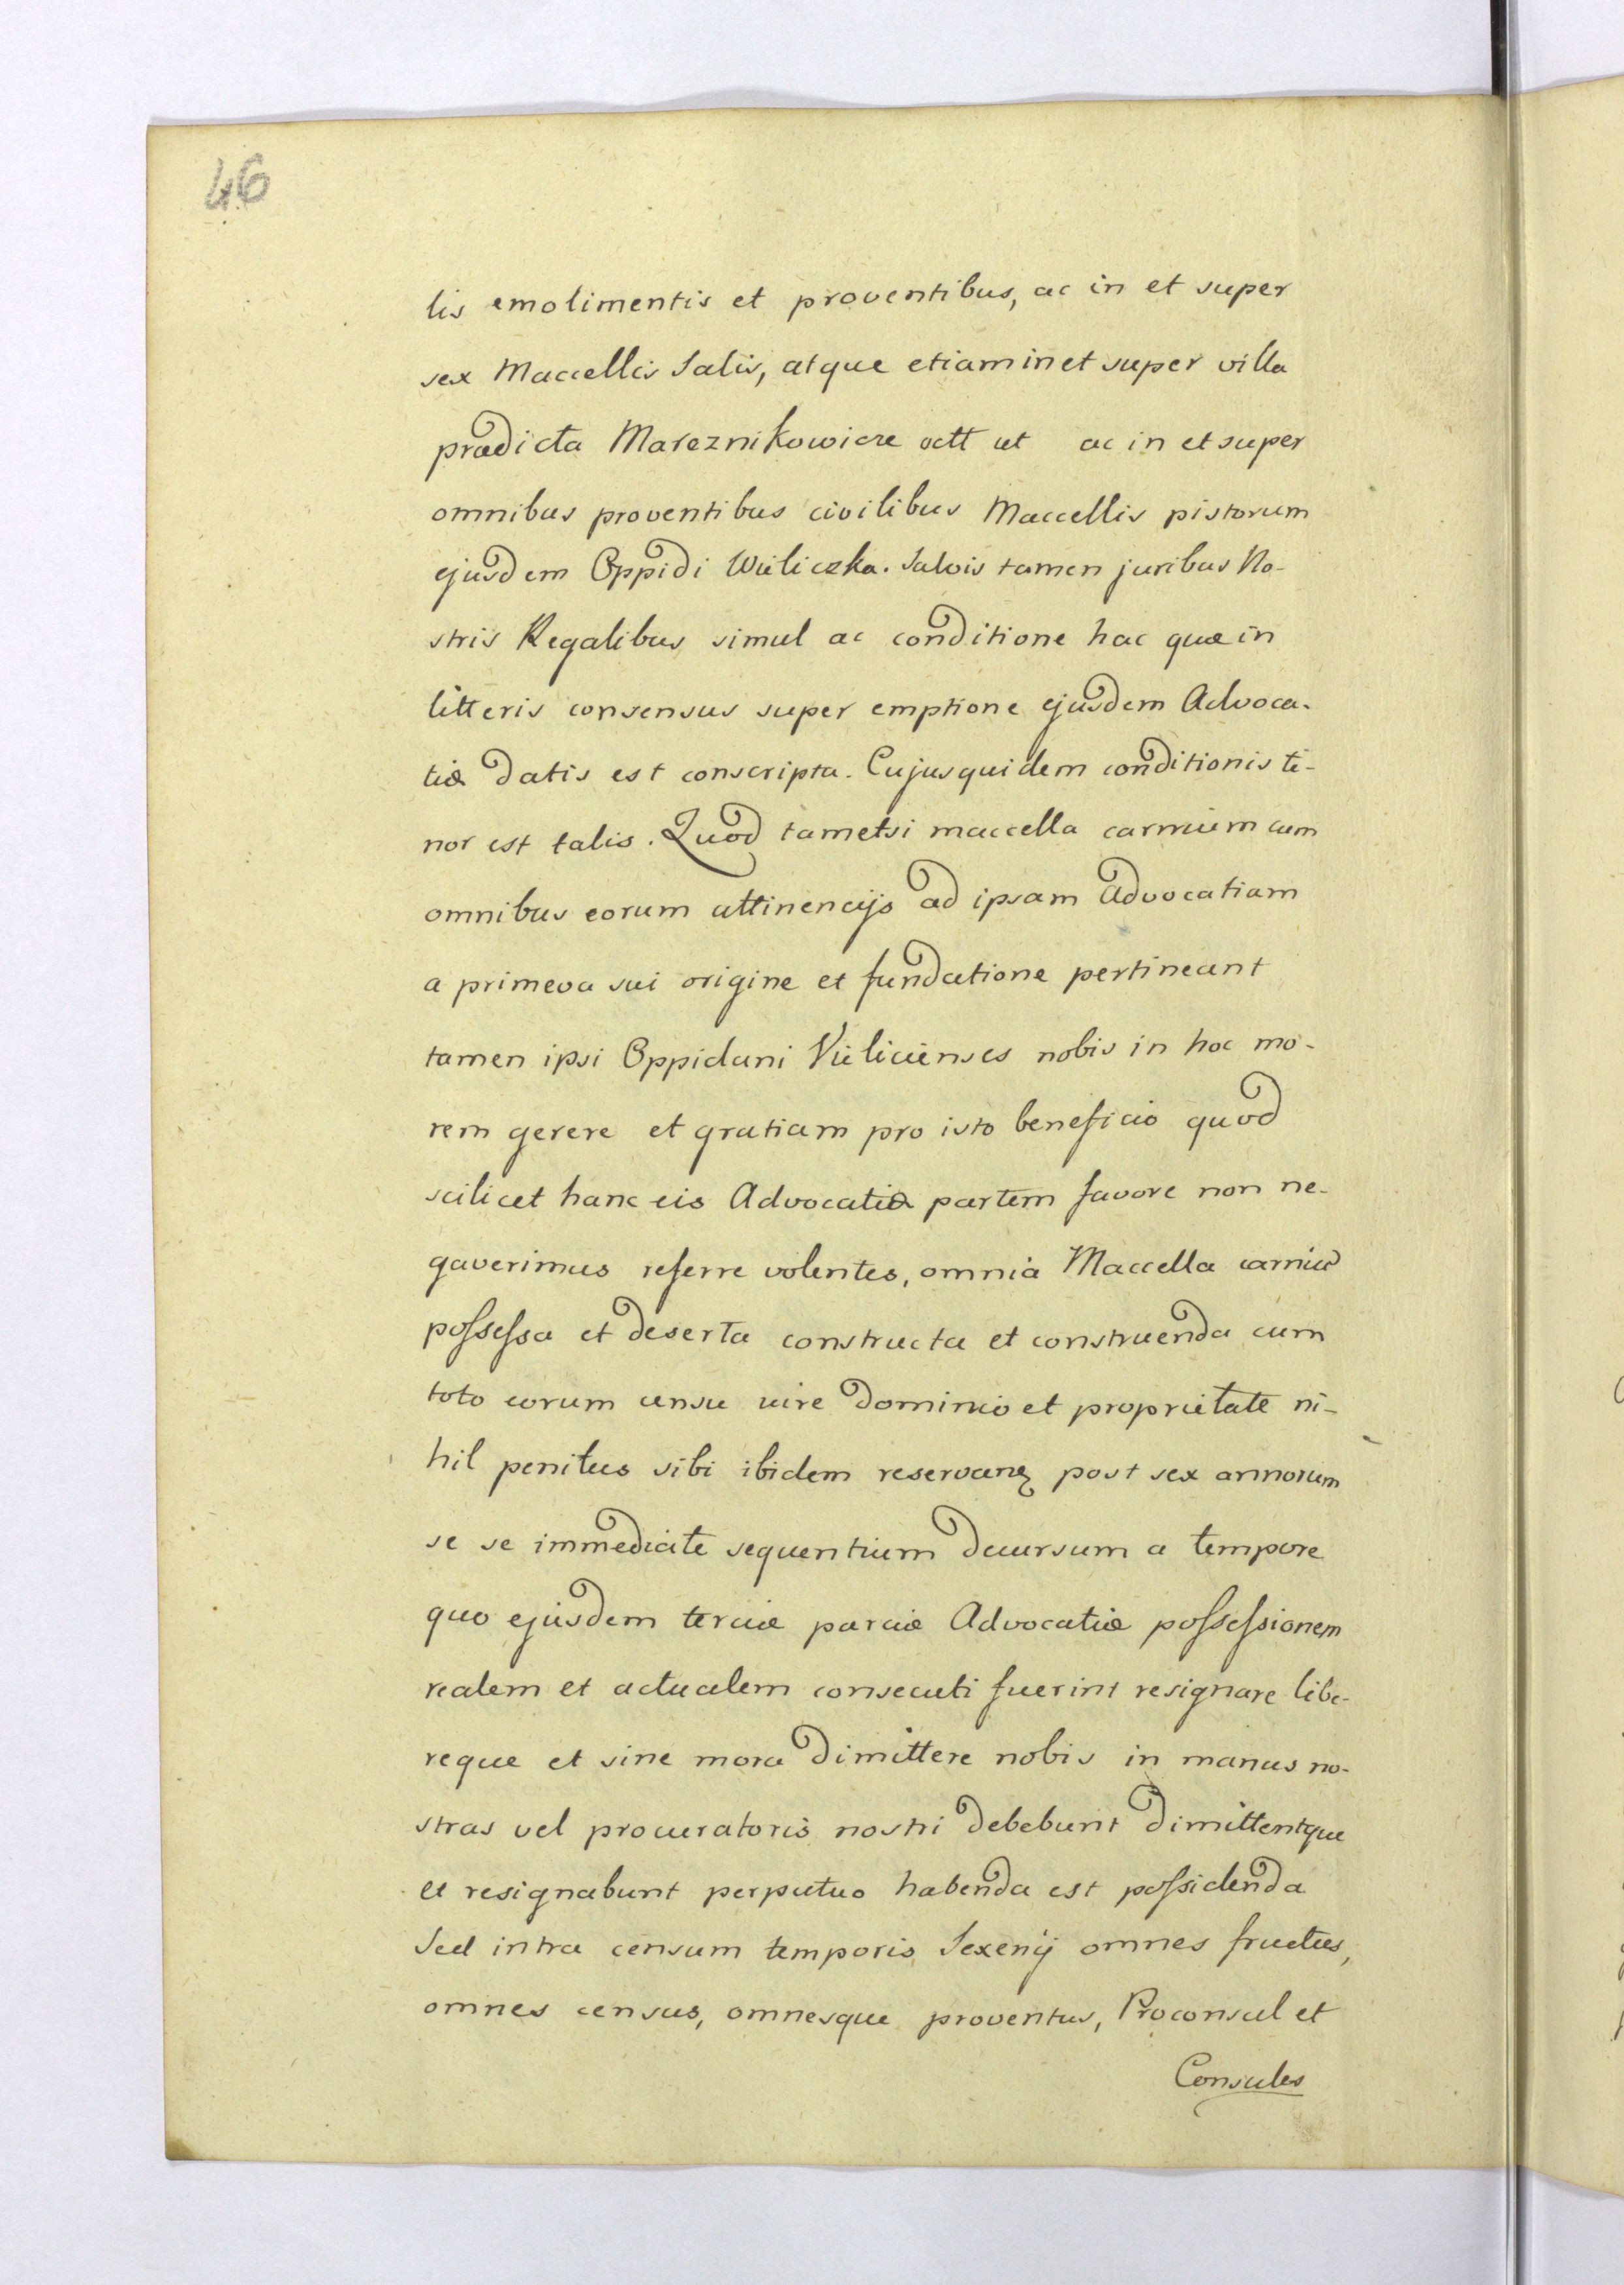 46
lis emolimentis et proventibus, ac in et super
sex Maccellis Salis, atque etiam in et super villa
prædicta Mareznikowicze octt ut ac in et super
omnibus proventibus civilibus Maccellis pistorum
ejusdem Oppidi Wieliczka. Salvis tamen juribus No-
stris Regalibus simul ac conditione hac quæ in
litteris consensus super emptione ejusdem Advoca-
tiæ datis est conscripta. Cujusquidem conditionis te-
nor est talis. Quod tametsi maccella carnium cum
omnibus eorum attinencijs ad ipsam advocatiam
a primeva sui origine et fundatione pertineant
tamen ipsi Oppidani Vielicienses nobis in hoc mo-
rem gerere et gratiam pro isto beneficio quod
scilicet hanc eis Advocatiæ partem favore non ne-
gaverimus referre volentes, omnia Maccella carniū
possessa et deserta constructa et construenda cum
toto eorum censu iure dominio et proprietate ni-
hil penitus sibi ibidem reservanę post sex annorum
se se immediate sequentium decursum a tempore
quo ejusdem terciæ parciæ Advocatiæ possessionem
realem et actualem consecuti fuerint resignare libe-
reque et sine mora dimittere nobis in manus no-
stras vel procuratoris nostri debebunt dimittentque
et resignabunt perpetuo habenda est possidenda
Sed intra censum temporis Sexenij omnes fructus,
omnes census, omnesque proventus, Proconsul et
Consules